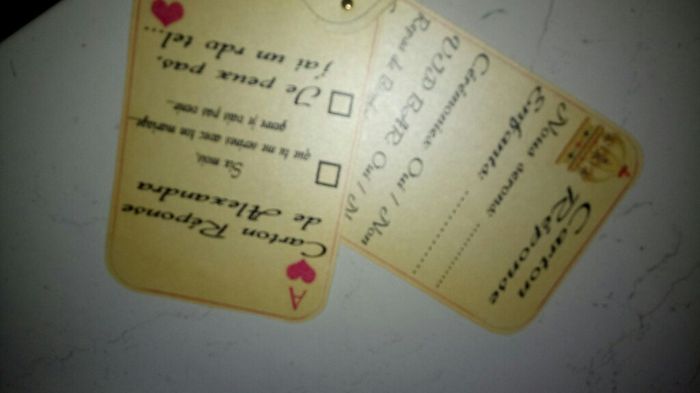 A
Carton Réponse
de Alexandra
Six mois,
que tu me serines avec ton mariage...
genre je vais pas venir...
Je peux pas,
j'ai un rdv tel...
A
Carton
Réponse
Nous serons: ..........
Enfants: ..........
Cérémonies Oui / Non
VIP BAR Oui / N
Repas de